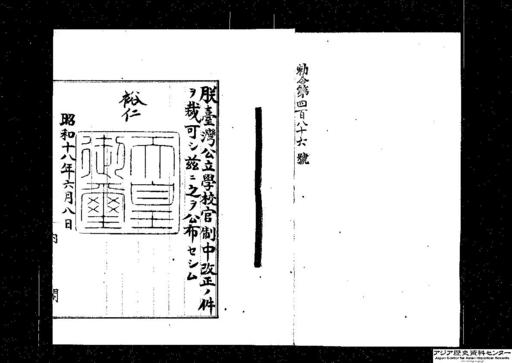 勅令第四百八十六號
朕臺灣公立學校官制中改正ノ件
ヲ裁可シ玆ニ之ヲ公布セシム
裕仁
天皇
御璽
昭和十八年六月八日
内閣
アジア歴史資料センター
Japan Center for Asian Historical Records